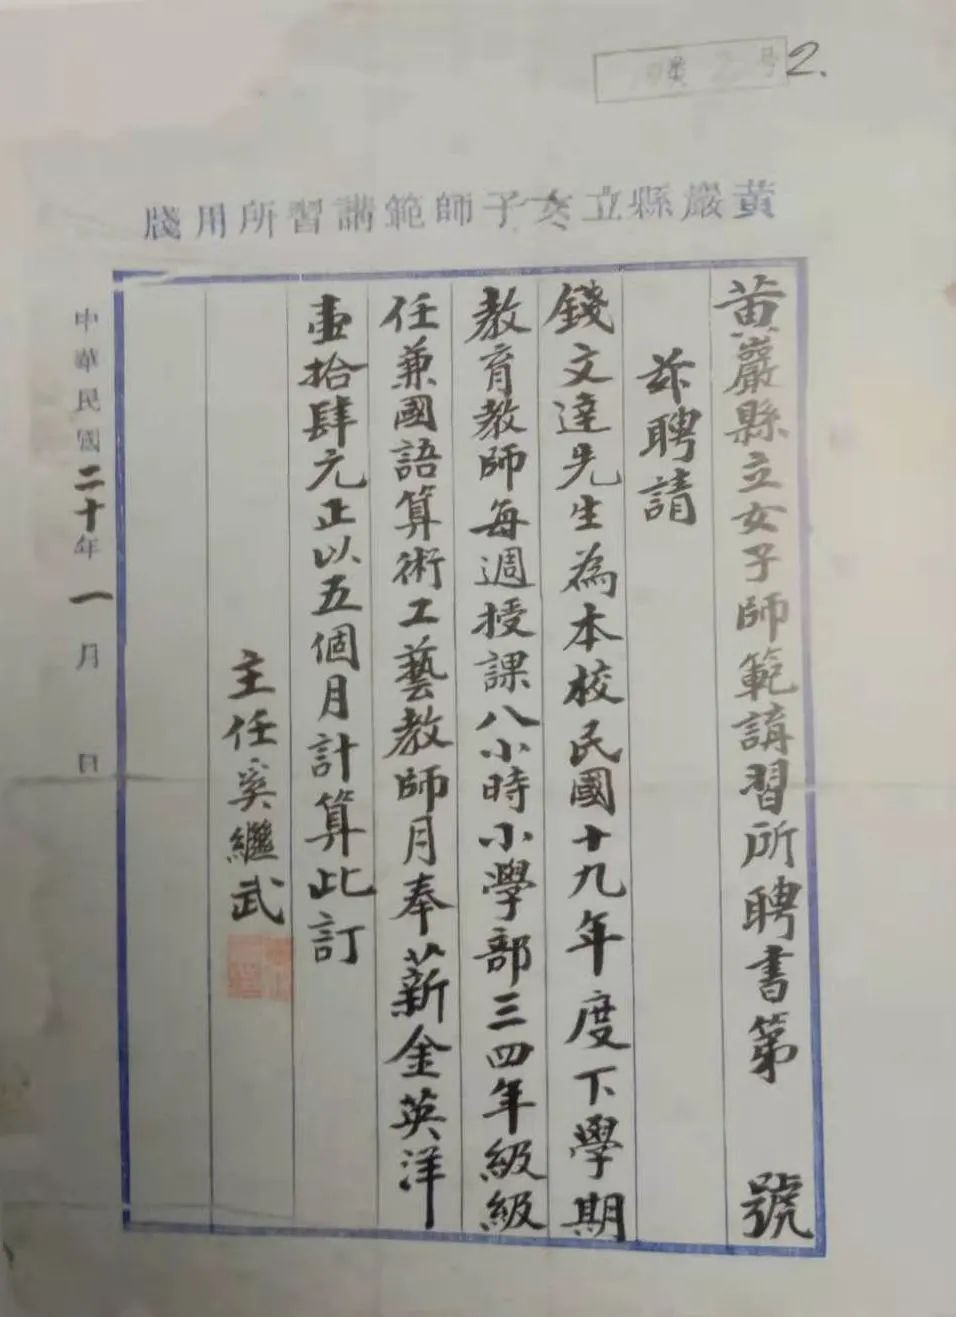 2.
黃巖縣立女子師範講習所用牋
黃巖縣立女子師範講習所聘書第　號
茲聘請
錢文達先生為本校民國十九年度下學期
教育教師每週授課八小時小學部三四年級級
任兼國語算術工藝教師月奉薪金英洋
壹拾肆元正以五個月計算此訂
主任奚繼武
中華民國二十年一月　日